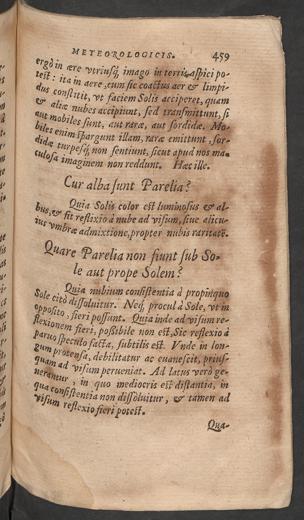 METEOROLOGICIS. 459
ergò in ære vtriusq; imago in terris aspici po-
test: ita in aere, cum sic coactus aer & limpi-
dus constitit, vt faciem Solis acciperet, quam
& aliæ nubes accipiunt, sed transmittunt, si
aut mobiles sunt, aut raræ, aut sordidæ. Mo-
biles enim spargunt illam, raræ emittunt, sor-
didæ turpesq; non sentiunt, sicut apud nos ma-
culosa imaginem non reddunt. Hæc ille.
Cur alba sunt Parelia?
Quia Solis color est luminosus & al-
bus, & fit reflexio à nube ad visum, siue alicu-
ius vmbræ admixtione, propter nubis raritatē.
Quare Parelia non fiunt sub So-
le aut prope Solem?
Quia nubium consistentia à propinquo
Sole citò dissoluitur. Neq; procul à Sole, vt in
opposito, fieri possunt. Quia inde ad visum re-
flexionem fieri, possibile non est, Sic reflexio à
paruo speculo facta, subtilis est. Vnde in lon-
gum protensa, debilitatur ac euanescit, prius-
quam ad visum perueniat. Ad latus verò ge-
nerantur, in quo mediocris est distantia, in
qua consistentia non dissoluitur, & tamen ad
visum reflexio fieri potest.
Qua-